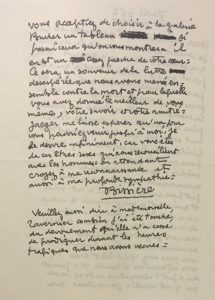 vous acceptiez de choisir à la galerie
un tableau si
parmi ceux qu'on vous montrera il
en est un assez proche de votre cœur.
Ce sera un souvenir de la lutte
désespérée que nous avons menée en-
semble contre la mort et pour laquelle
vous avez donné le meilleur de vous
même, votre savoir et votre amitié.
me laisse espérer qu'un jour
vous pourriez venir jusqu'à moi, je
le désire infiniment, car vous êtes
de ces êtres rares qui vous réconcilient
avec les hommes. En attendant
croyez à ma reconnaissance et
aussi à ma profonde sympathie.
Veuillez aussi dire à mademoiselle
Tavernier combien j'ai été touché
du dévouement qu'elle n'a cessé
de prodiguer durant les heures
tragiques que nous avons vécues.